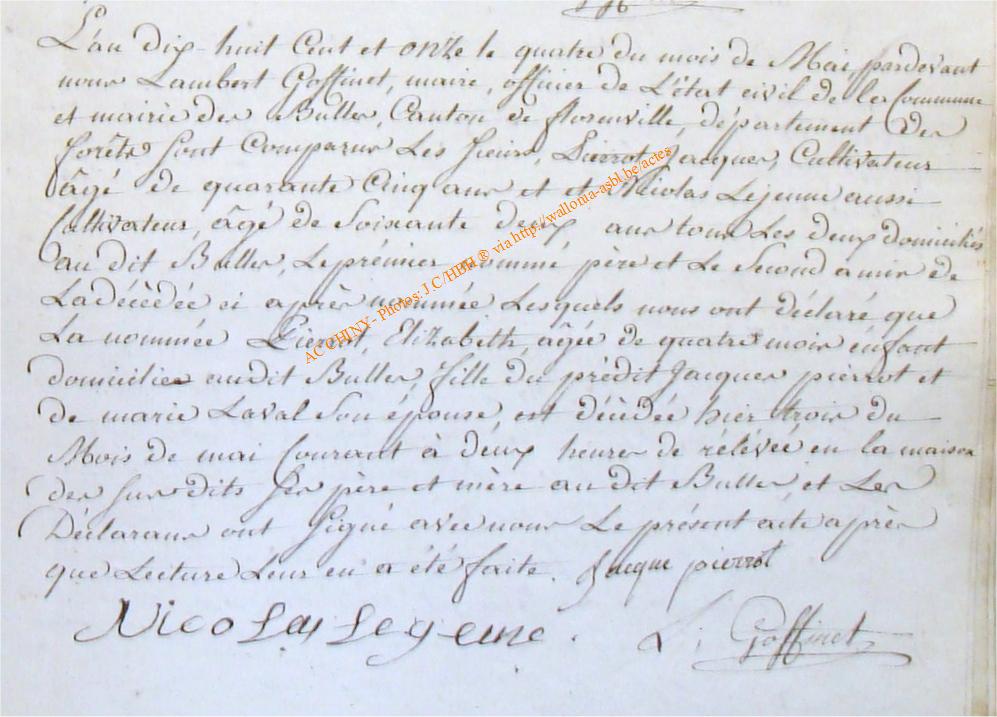 L'an dix-huit Cent et onze le quatre du mois de Mai, pardevant
nous Lambert Goffinet, maire, officier de L'état civil de la Commune
et mairie des Bulles, Canton de florenville, département des
forêts sont Comparus Les sieurs, Pierrot, Jacques, Cultivateur
âgé de quarante Cinq ans et et Nicolas Lejeune aussi
Cultivateur, âgé de Soixante deux ans tous Les deux domiciliés
au dit Bulles, Le prémier nommé père et Le Second amis de
La décèdée ci après nommée Lesquels nous ont déclaré que
La nommée Pierrot, Elizabeth, âgée de quatre mois énfant
domiciliée audit Bulles, fille du prédit Jacques pierrot et
de marie Laval Son épouse, est décèdée hier trois du
Mois de mai Courant à deux heures de rélévée en la maison
des susdits Ses père et mère au dit Bulles et Les
Déclarans ont Signé avec nous Le présent acte après
que Lecture Leur en a été faite. Jacque pierrot
Nicolas Legeune.
L. Goffinet
AC CHINY - Photos: J.C/HBH ® via http://wallonia-asbl.be/actes